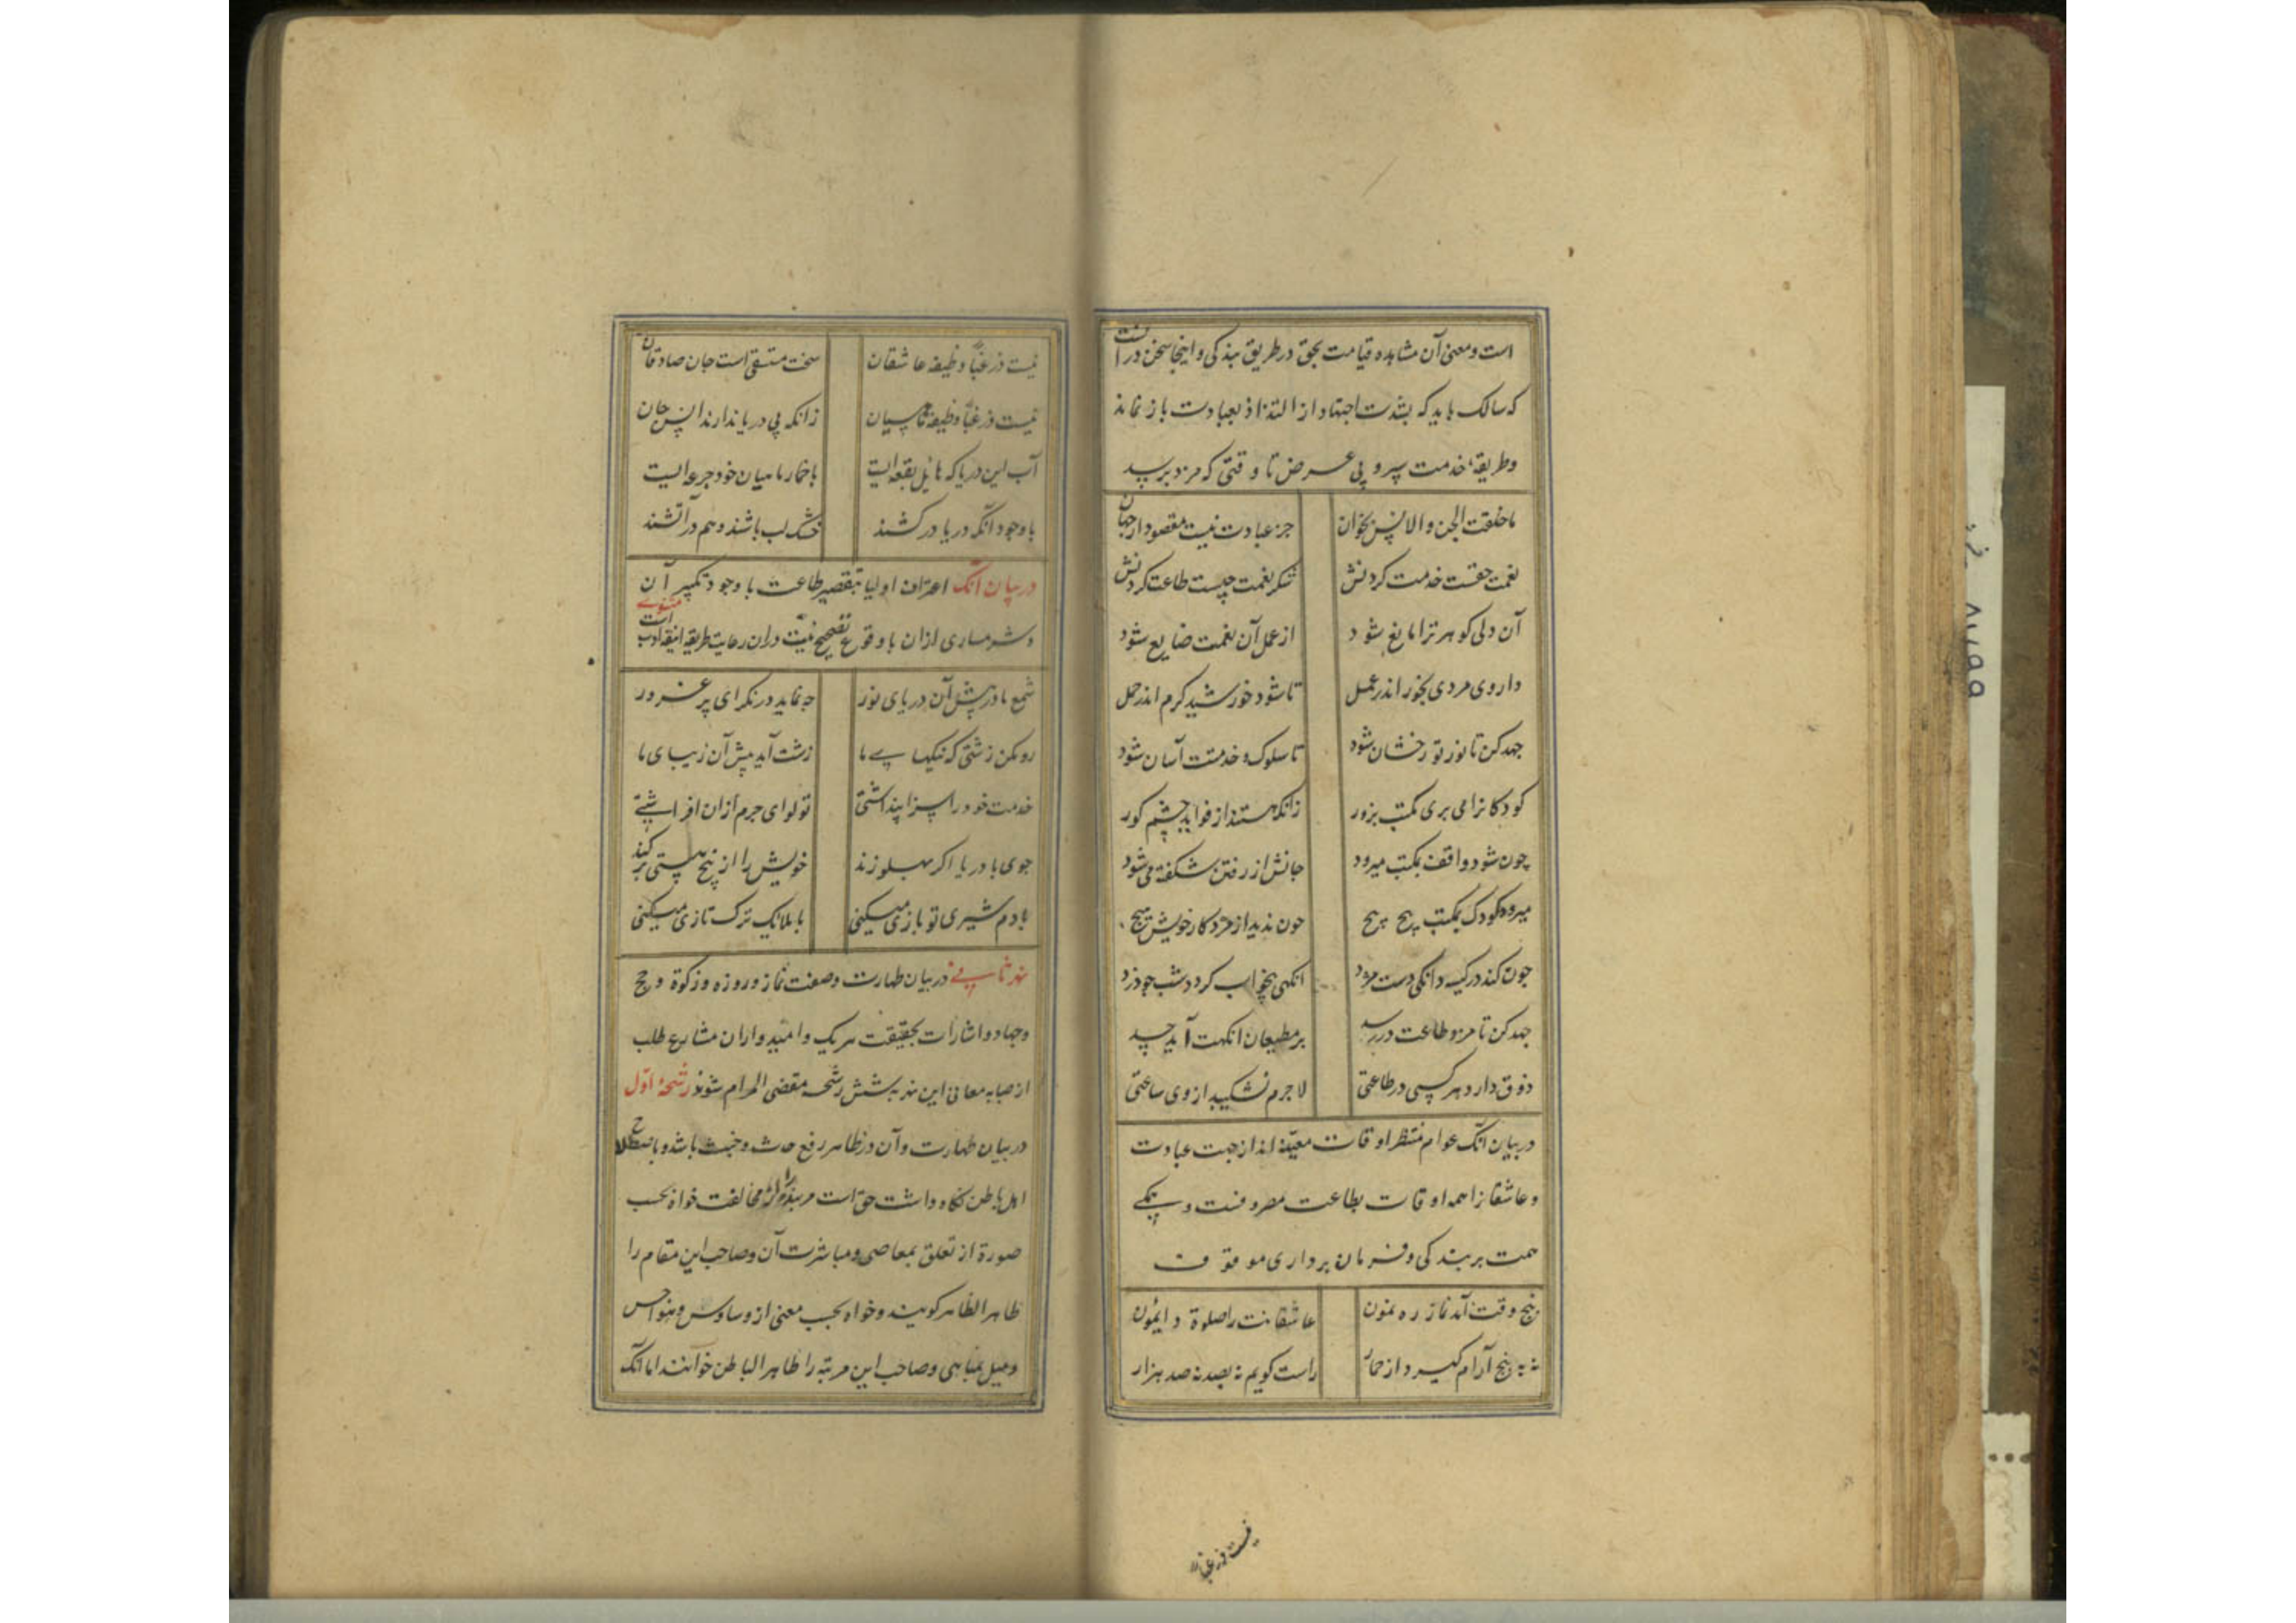 است و معنی آن مشاهده قیامت بحق در طریق بندکی و اینجا سخن در آنست
که سالک باید که بشدت اجتهاد از التذاذ بعبادت باز نماند
و طریقهٔ خدمت سپرد بی عرض تا وقتی که مزد برسد
ما خلقت الجن و الانس بخوان جز عبادت نیست مقصود از جهان
نعمت حقست خدمت کردنش شکر نعمت چیست طاعت کردنش
آن دلی کو مر ترا مانع شود از عمل آن نعمت ضایع شود
داروی مردی بخور اندر عمل تا شود خورشید کرم اندر حمل
جهد کن تا نور تو رخشان شود تا سلوک و خدمتت آسان شود
کودکانرا می بری مکتب بزور زانکه هستند از فواید چشم کور
چون شود واقف بمکتب میرود جانش از رفتن شکفته می شود
میرود کودک بمکتب پیچ پیچ چون ندید از مزد کار خویش هیچ
چون کند در کیسه دانکی دست مزد انکهی بیخواب کردد شب چو دزد
جهد کن تا مزد طاعت در رسد بر مطیعان انکهت آید حسد
ذوق دارد هر کسی در طاعتی لاجرم نشکیبد از وی ساعتی
در بیان آنک عوام منتظر اوقات معینه اند از جهت عبادت
و عاشقانرا همه اوقات بطاعت مصروفست و یکی
همت بر بندکی و فرمان برداری موقوف
پنج وقت آمد نماز ره نمون عاشقانت را صلوة دایمون
نه به پنج آرام کیرد از خمار راست کویم نه بصد نه صد هزار
نیست زر غبا
نیست زر غبا وظیفه عاشقان سخت مستسقی است جان صادقان
نیست زر غبا وظیفه ماهیان زانکه بی دریا ندارند انس جان
آب این دریا که هایل بقعه ایست با خمار ماهیان خود جرعه ایست
با وجود آنکه دریا در کشند خشک لب باشند و هم در آتشند
در بیان آنک اعتراف اولیا بتقصیر طاعت با وجود تکمیر آن
و شرمساری از ان با وقوع تصحیح نیت در ان رعایت طریقه انیقه ادب است مثنوی
شمع ما در پیش آن دریای نور چه نماید در نکر ای پر غرور
رو مکن زشتی که نیکیهای ما زشت آید پیش آن زیبای ما
خدمت خود را سزا پنداشتی تو لوای جرم از ان افراشتی
جوی با دریا اکر پهلو زند خویش را از بیخ هستی بر کند
با دم شیری تو بازی میکنی با ملایک ترک تازی میکنی
نهر ثانی در بیان طهارت و صفت نماز و روزه و زکوة و حج
و جهاد و اشارات بحقیقت هر یک و امیدواران مشارع طلب
از صبابه معانی این نهر به شش رشحه مقضی المرام شوند رشحهٔ اول
در بیان طهارت و آن در ظاهر رفع حدث و خبث باشد و باصطلاح
اهل باطن نکاه داشت حق است مر بنده را از مخالفت خواه بحسب
صورة از تعلق بمعاصی و مباشرت آن و صاحب این مقام را
طاهر الظاهر کویند و خواه بحسب معنی از وساوس و هواجس
و میل بمناهی و صاحب این مرتبه را طاهر الباطن خوانند اما آنک